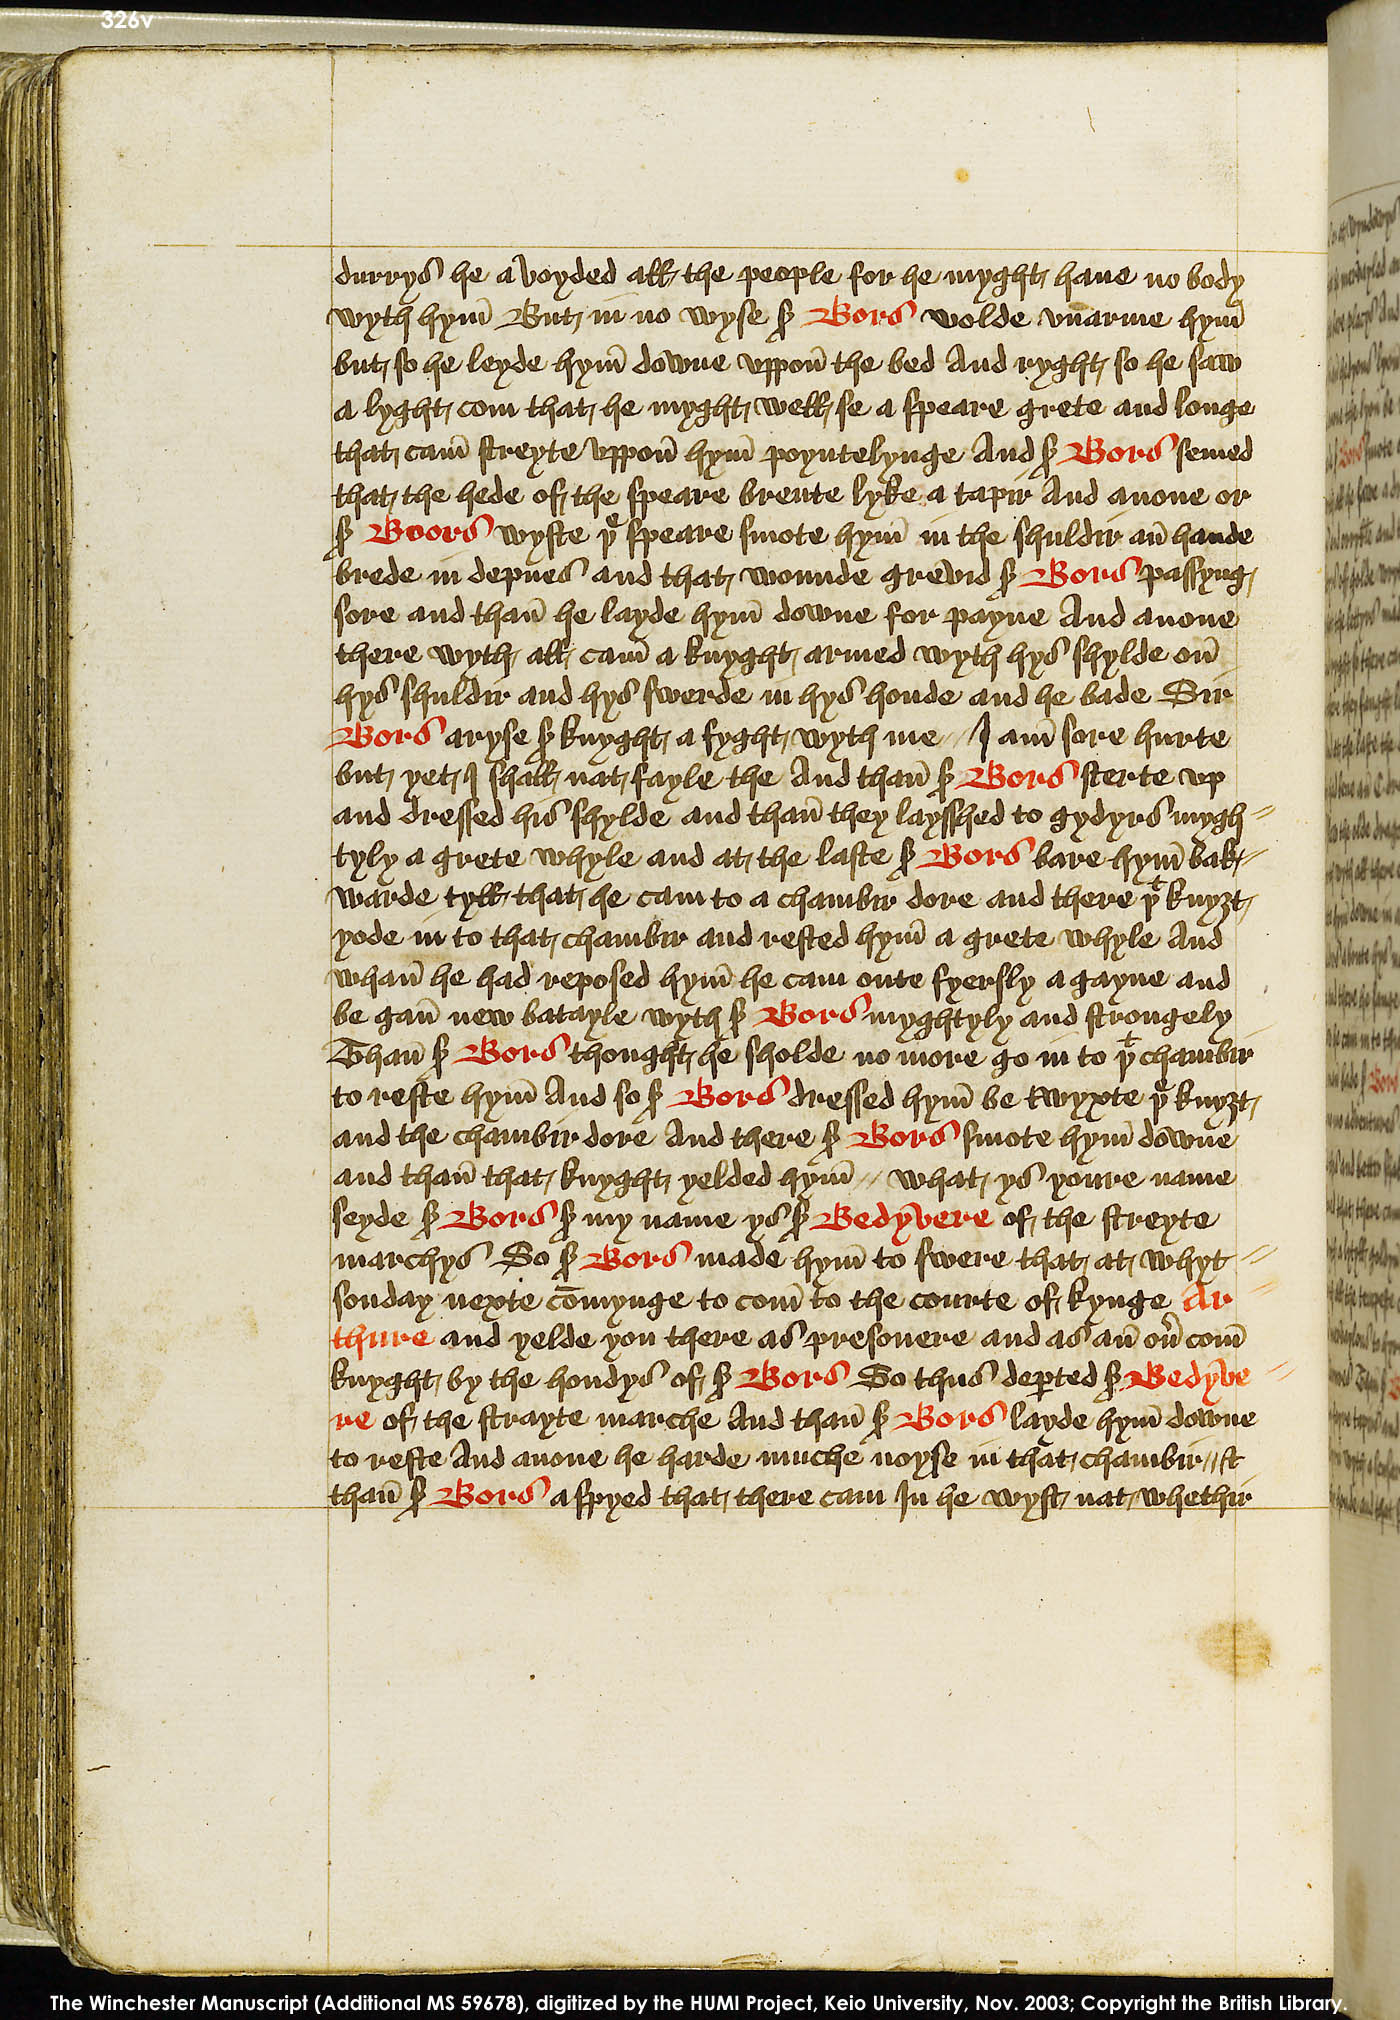 326v
durrys he a voyded all the people for he myght have no body
wyth hym̄ But in no wyse sꝛ Bors wolde vnarme hym̄
but so he leyde hym̄ downe vppon̄ the bed And ryght so he saw
a lyght com that he myght well se a speare grete and longe
that cam̄ streyte vppon̄ hym̄ poyntelynge And sꝛ Bors semed
that the hede of the speare brente lyke a tapir And anone or
sꝛ Boors wyste þe speare smote hym̄ in the shuldir an̄ hande
brede in depnes and that wounde grevid sꝛ Bors passyng
sore and than̄ he layde hym̄ downe for payne And anone
there wyth all cam̄ a knyght armed wyth hys shylde on̄
hys shuldir and hys swerde in hys honde and he bade Sir
Bors aryse sꝛ knyght a fyght wyth me // I am̄ sore hurte
but yet I shall nat fayle the And than̄ sꝛ Bors sterte vp
and dressed his shylde and than̄ they laysshed to gydyrs mygh//
tyly a grete whyle and at the laste sꝛ Bors bare hym̄ bak//
warde tyll that he cam to a chambir dore and there þt knyȝt
yode in to that chambir and rested hym̄ a grete whyle And
whan̄ he had reposed hym̄ he cam oute fyersly a gayne and
be gan̄ new batayle wyth sꝛ Bors myghtyly and strongely
Than̄ sꝛ Bors thought he sholde no more go in to þt chambir
to reste hym̄ And so sꝛ Bors dressed hym̄ be twyxte þe knyȝt
and the chambir dore And there sꝛ Bors smote hym̄ downe
and than̄ that knyght yelded hym̄ // what ys youre name
seyde sꝛ Bors sꝛ my name ys sꝛ Bedyvere of the streyte
marchys So sꝛ Bors made hym̄ to swere that at whyt//
sonday nexte cōmynge to com̄ to the courte of kynge Ar//
thure and yelde you there as presonere and as an̄ oṽ com̄
knyght by the hondys of sꝛ Bors So thus deꝑted sꝛ Bedyve//
re of the strayte marche And than̄ sꝛ Bors layde hym̄ downe
to reste And anone he harde muche noyse in that chambir // &
than̄ sꝛ Bors aspyed that there cam In he wyst nat whethir
The Winchester Manuscript (Additional MS 59678), digitized by the HUMI Project, Keio University, Nov. 2003; Copyright the British Library.